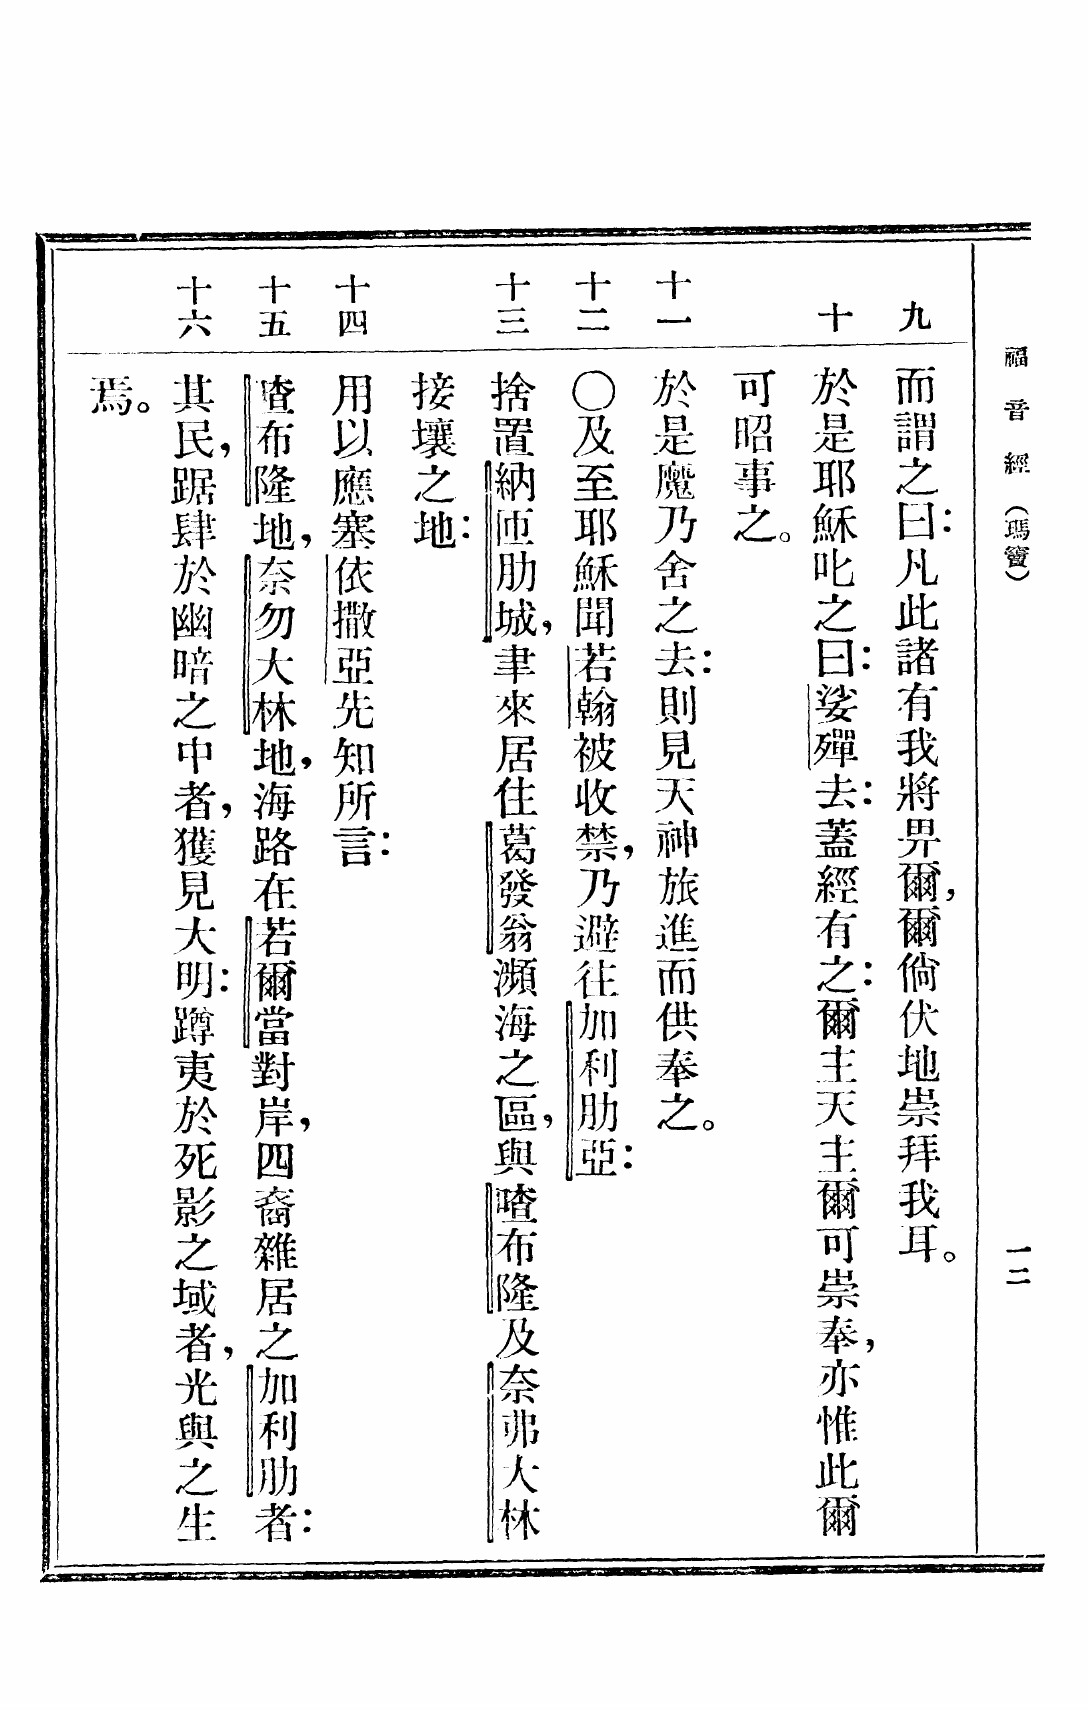 福音經（瑪竇） 一二
九 而謂之曰：凡此諸有我將畀爾，爾倘伏地崇拜我耳。
十 於是耶穌叱之曰：娑殫去：蓋經有之：爾主天主爾可崇奉，亦惟此爾
可昭事之。
十一 於是魔乃舍之去：則見天神旅進而供奉之。
十二 ○及至耶穌聞若翰被收禁，乃避往加利肋亞：
十三 捨置納匝肋城，聿來居住葛發翁瀕海之區，與喳布隆及奈弗大林
接壤之地：
十四 用以應塞依撒亞先知所言：
十五 喳布隆地，奈勿大林地，海路在若爾當對岸，四裔雜居之加利肋者：
十六 其民，踞肆於幽暗之中者，獲見大明：蹲夷於死影之域者，光與之生
焉。